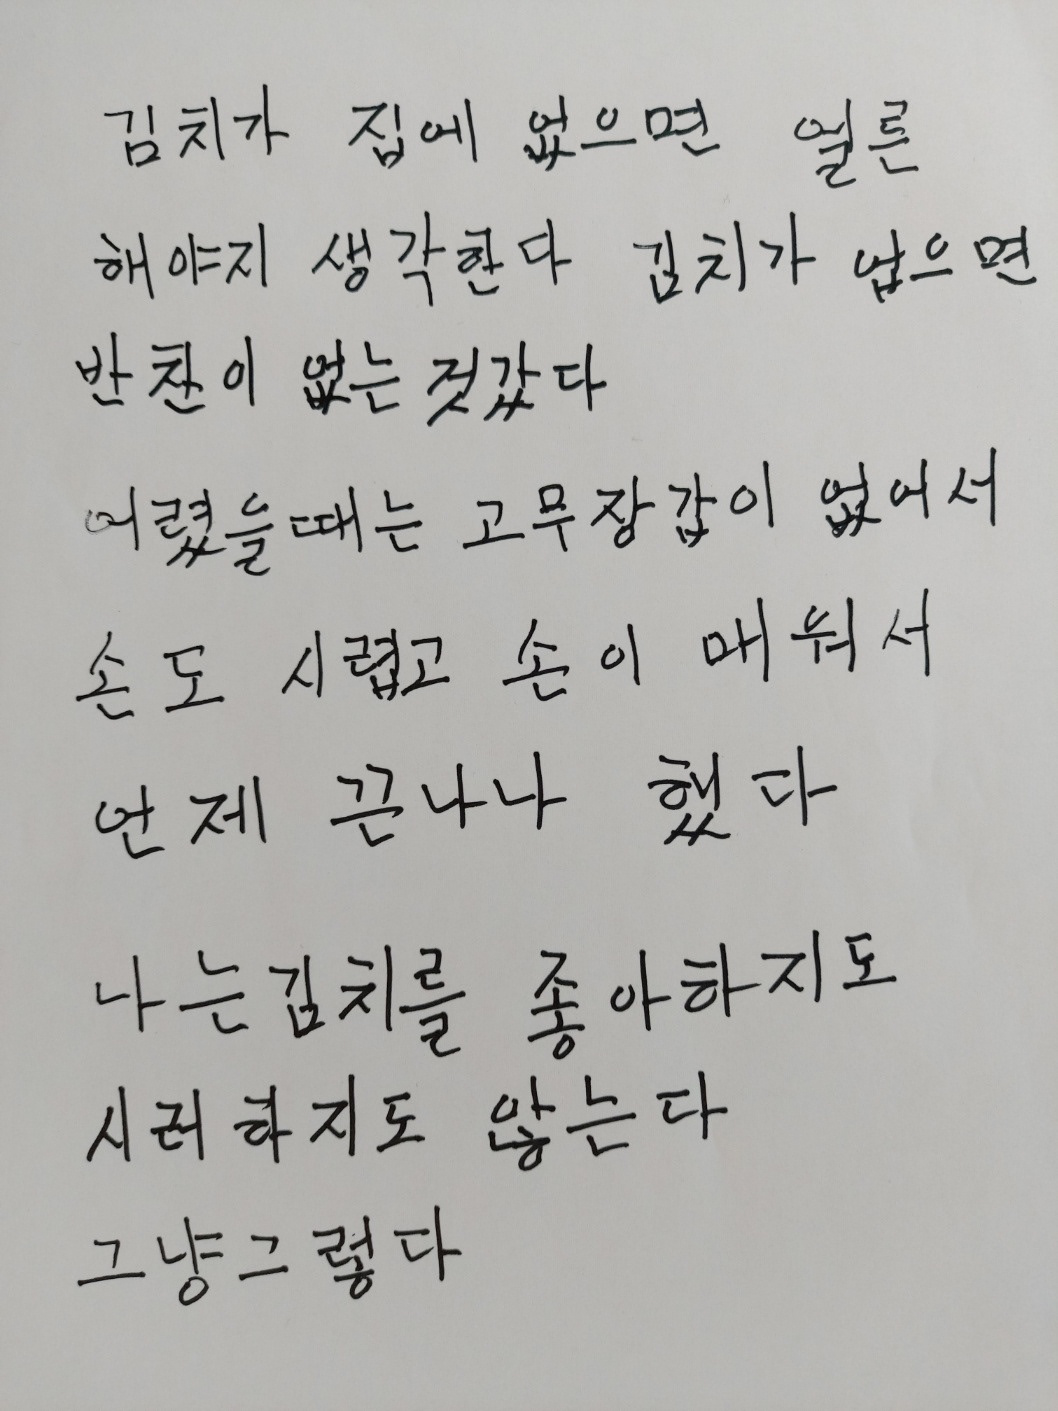 김치가 집에 없으면 얼른
해야지 생각한다 김치가 업으면
반찬이 없는 것갔다
어렸을때는 고무장갑이 없어서
손도 시렵고 손이 매워서
언제 끈나나 했다
나는김치를 좋아하지도
시러하지도 않는다
그냥그렇다